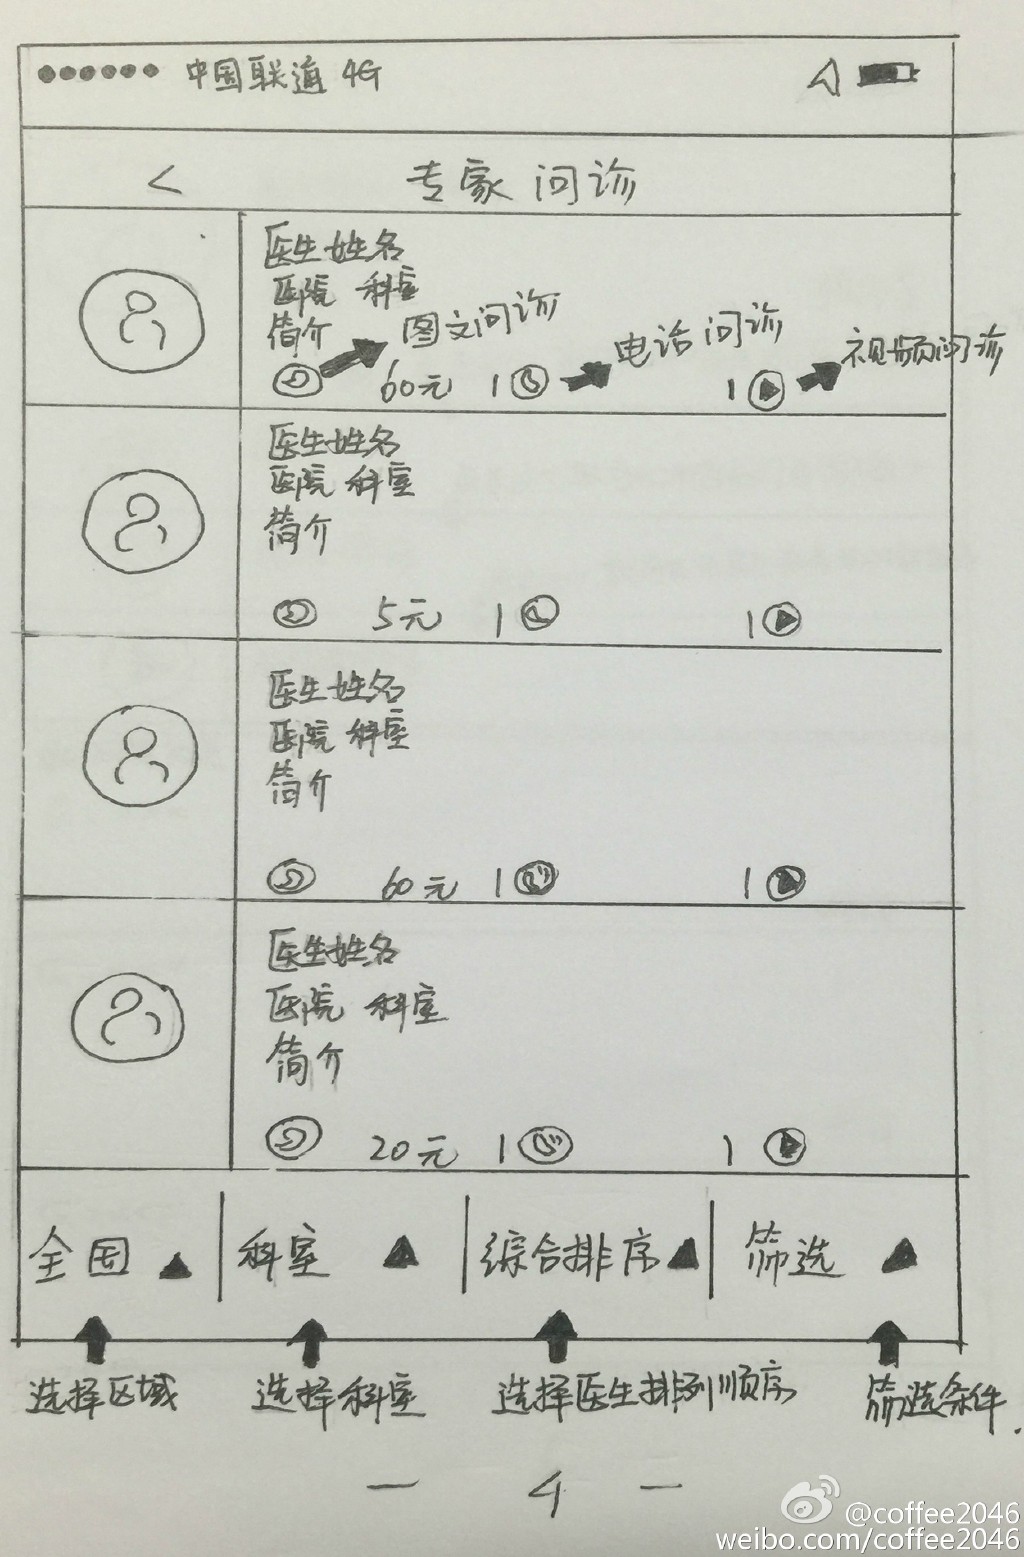 中国联通 4G
< 专家问诊
医生姓名
医院 科室
简介 图文问诊 电话问诊 视频问诊
60元
医生姓名
医院 科室
简介
5元
医生姓名
医院 科室
简介
60元
医生姓名
医院 科室
简介
20元
全国 ▲ 科室 ▲ 综合排序 ▲ 筛选 ▲
选择区域 选择科室 选择医生排列顺序 筛选条件.
— 4 —
@coffee2046
weibo.com/coffee2046